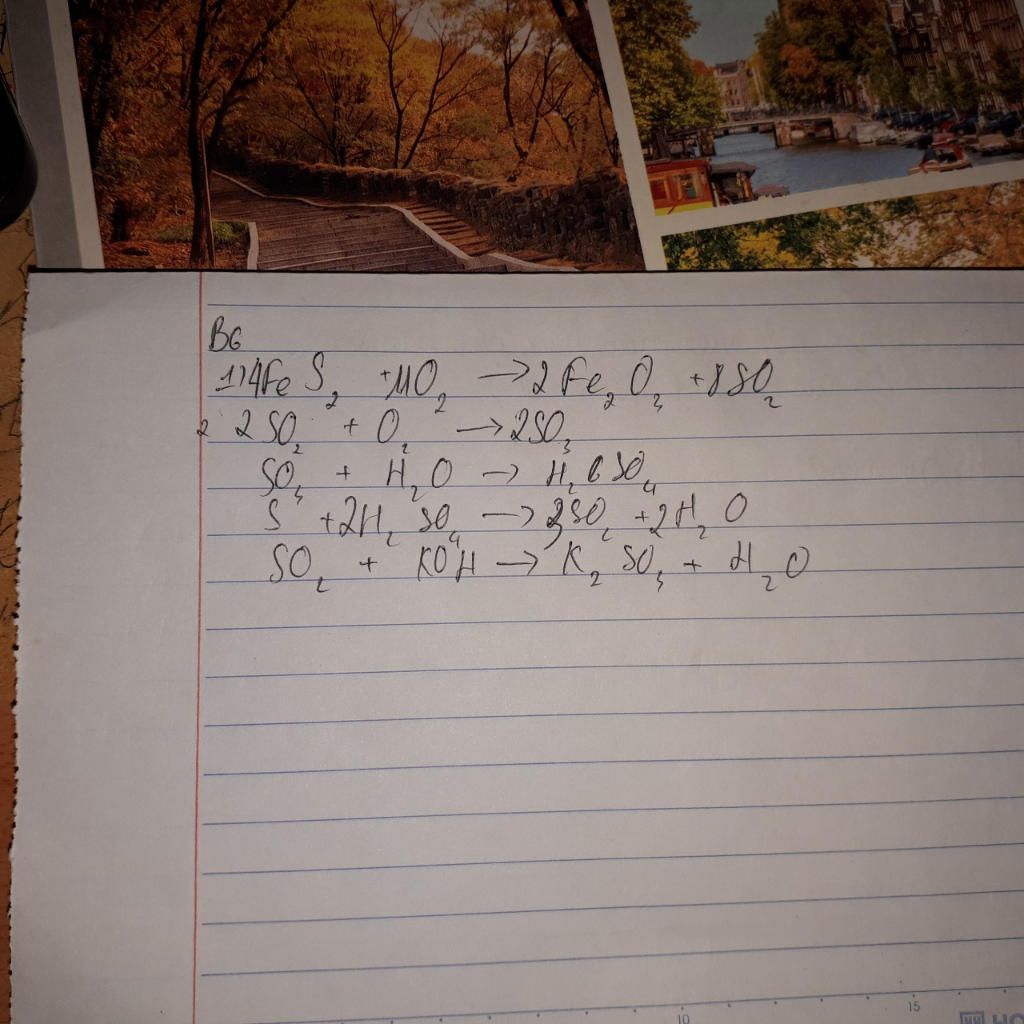 В6
1) 4FeS₂ + 11O₂ → 2Fe₂O₃ + 8SO₂
2 2SO₂ + O₂ → 2SO₃
SO₃ + H₂O → H₂SO₄
S + 2H₂SO₄ → 3SO₂ + 2H₂O
SO₂ + KOH → K₂SO₃ + H₂O
10 15